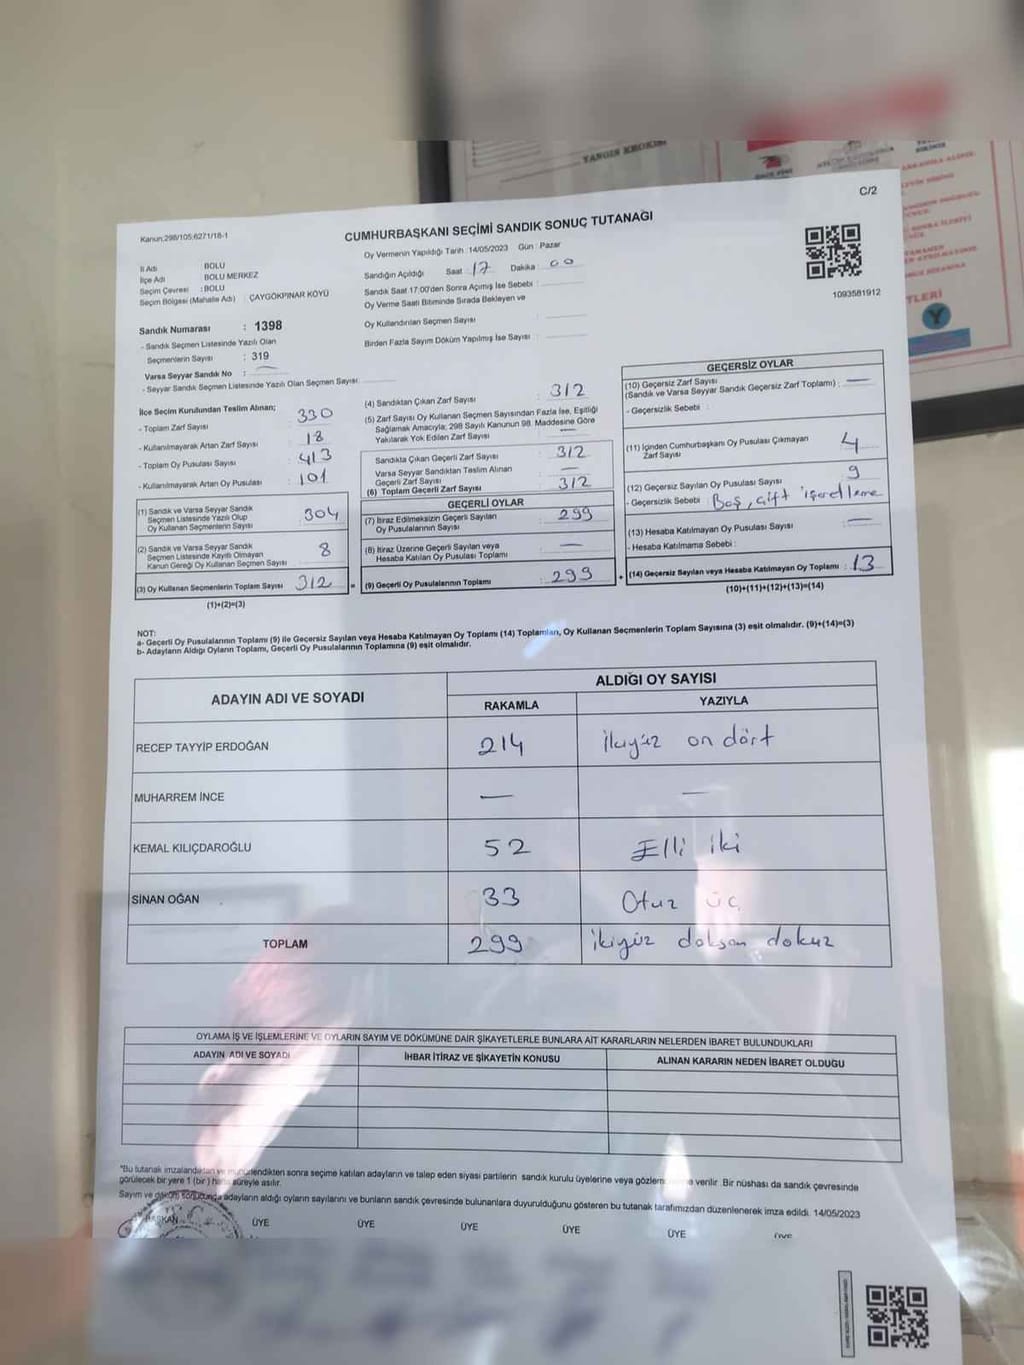 YANGIN KROKİSİ
C/2
Kanun:298/105;6271/18-1
CUMHURBAŞKANI SEÇİMİ SANDIK SONUÇ TUTANAĞI
Oy Vermenin Yapıldığı Tarih :14/05/2023 Gün : Pazar
İl Adı BOLU
İlçe Adı BOLU MERKEZ
Seçim Çevresi : BOLU
Seçim Bölgesi (Mahalle Adı) : ÇAYGÖKPINAR KÖYÜ
Sandığın Açıldığı Saat 17 Dakika 00
Sandık Saat 17:00'den Sonra Açımış İse Sebebi :
Oy Verme Saati Bitiminde Sırada Bekleyen ve
Oy Kullandırılan Seçmen Sayısı :
Birden Fazla Sayım Döküm Yapılmış İse Sayısı :
1093581912
Sandık Numarası : 1398
- Sandık Seçmen Listesinde Yazılı Olan
Seçmenlerin Sayısı : 319
Varsa Seyyar Sandık No : —
- Seyyar Sandık Seçmen Listesinde Yazılı Olan Seçmen Sayısı:
İlçe Seçim Kurulundan Teslim Alınan;
- Toplam Zarf Sayısı 330
- Kullanılmayarak Artan Zarf Sayısı 18
- Toplam Oy Pusulası Sayısı 413
- Kullanılmayarak Artan Oy Pusulası 101
(1) Sandık ve Varsa Seyyar Sandık
Seçmen Listesinde Yazılı Olup
Oy Kullanan Seçmenlerin Sayısı 304
(2) Sandık ve Varsa Seyyar Sandık
Seçmen Listesinde Kayıtlı Olmayan
Kanun Gereği Oy Kullanan Seçmen Sayısı 8
(3) Oy Kullanan Seçmenlerin Toplam Sayısı 312 =
(1)+(2)=(3)
(4) Sandıktan Çıkan Zarf Sayısı 312
(5) Zarf Sayısı Oy Kullanan Seçmen Sayısından Fazla İse, Eşitliği
Sağlamak Amacıyla; 298 Sayılı Kanunun 98. Maddesine Göre
Yakılarak Yok Edilen Zarf Sayısı : —
Sandıkta Çıkan Geçerli Zarf Sayısı 312
Varsa Seyyar Sandıktan Teslim Alınan
Geçerli Zarf Sayısı —
(6) Toplam Geçerli Zarf Sayısı 312
GEÇERLİ OYLAR
(7) İtiraz Edilmeksizin Geçerli Sayılan
Oy Pusulalarının Sayısı 299
(8) İtiraz Üzerine Geçerli Sayılan veya
Hesaba Katılan Oy Pusulası Toplamı —
(9) Geçerli Oy Pusulalarının Toplamı : 299 +
GEÇERSİZ OYLAR
(10) Geçersiz Zarf Sayısı
(Sandık ve Varsa Seyyar Sandık Geçersiz Zarf Toplamı) : —
- Geçersizlik Sebebi :
(11) İçinden Cumhurbaşkanı Oy Pusulası Çıkmayan
Zarf Sayısı 4
(12) Geçersiz Sayılan Oy Pusulası Sayısı 9
- Geçersizlik Sebebi : Boş, çift işaretleme
(13) Hesaba Katılmayan Oy Pusulası Sayısı —
- Hesaba Katılmama Sebebi :
(14) Geçersiz Sayılan veya Hesaba Katılmayan Oy Toplamı : 13
(10)+(11)+(12)+(13)=(14)
NOT:
a- Geçerli Oy Pusulalarının Toplamı (9) ile Geçersiz Sayılan veya Hesaba Katılmayan Oy Toplamı (14) Toplamları, Oy Kullanan Seçmenlerin Toplam Sayısına (3) eşit olmalıdır. (9)+(14)=(3)
b- Adayların Aldığı Oyların Toplamı, Geçerli Oy Pusulalarının Toplamına (9) eşit olmalıdır.
ADAYIN ADI VE SOYADI ALDIĞI OY SAYISI
RAKAMLA YAZIYLA
RECEP TAYYİP ERDOĞAN 214 ikiyüz on dört
MUHARREM İNCE — —
KEMAL KILIÇDAROĞLU 52 Elli iki
SİNAN OĞAN 33 Otuz üç
TOPLAM 299 ikiyüz doksan dokuz
OYLAMA İŞ VE İŞLEMLERİNE VE OYLARIN SAYIM VE DÖKÜMÜNE DAİR ŞİKAYETLERLE BUNLARA AİT KARARLARIN NELERDEN İBARET BULUNDUKLARI
ADAYIN ADI VE SOYADI İHBAR İTİRAZ VE ŞİKAYETİN KONUSU ALINAN KARARIN NEDEN İBARET OLDUĞU
*Bu tutanak imzalandıktan ve mühürlendikten sonra seçime katılan adayların ve talep eden siyasi partilerin sandık kurulu üyelerine veya verilir. Bir nüshası da sandık çevresinde
görülecek bir yere 1 (bir) hafta süreyle asılır.
Sayım ve döküm sonucunda adayların aldığı oyların sayılarını ve bunların sandık çevresinde bulunanlara duyurulduğunu gösteren bu tutanak tarafımızdan düzenlenerek imza edildi. 14/05/2023
BAŞKAN ÜYE ÜYE ÜYE ÜYE ÜYE ÜYE